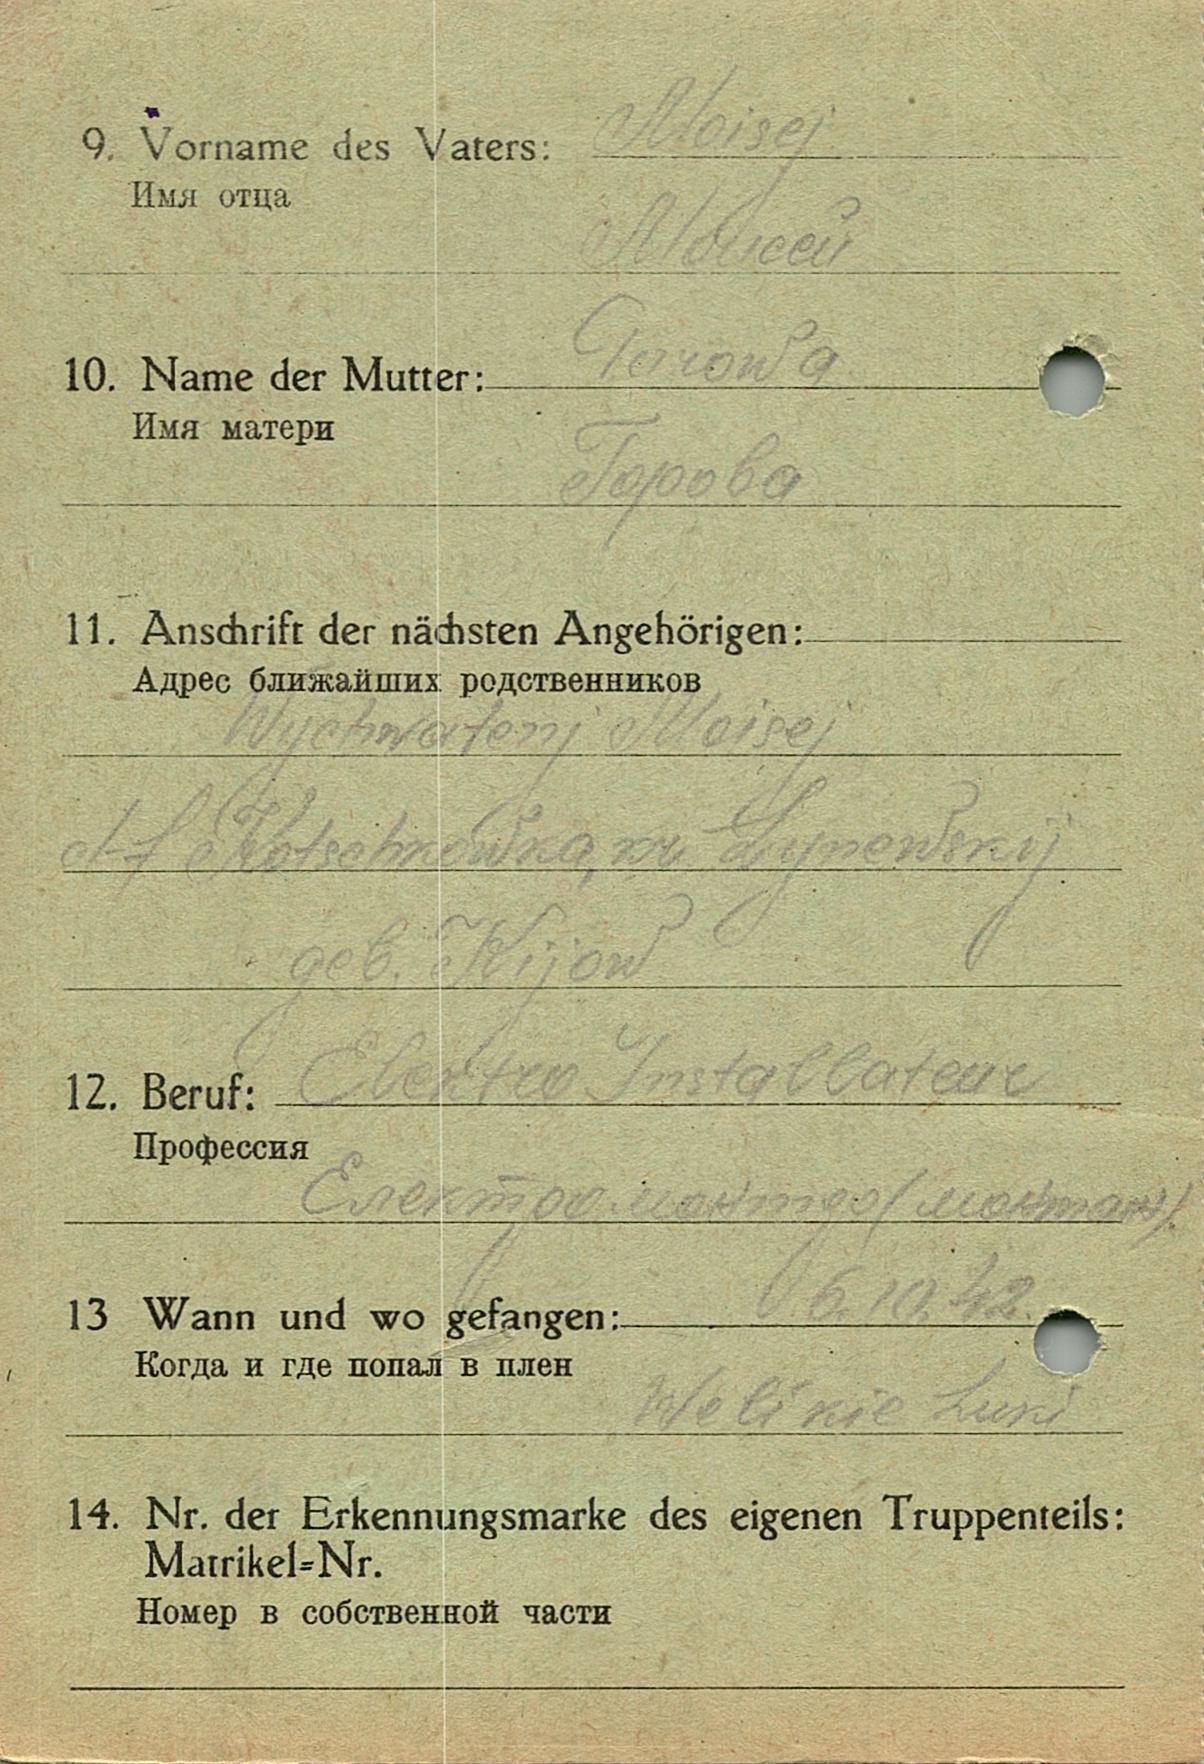 9. Vorname des Vaters: Moisej
Имя отца
Моисей
10. Name der Mutter: Gorowa
Имя матери
Горова
11. Anschrift der nächsten Angehörigen:
Адрес ближайших родственников
Wychwatenj Moisej
kr
geb. Kijow
12. Beruf: Elektro Installateur
Профессия
Електро
13 Wann und wo gefangen: 6.10.42.
Когда и где попал в плен
Welikie Luki
14. Nr. der Erkennungsmarke des eigenen Truppenteils:
Matrikel=Nr.
Номер в собственной части